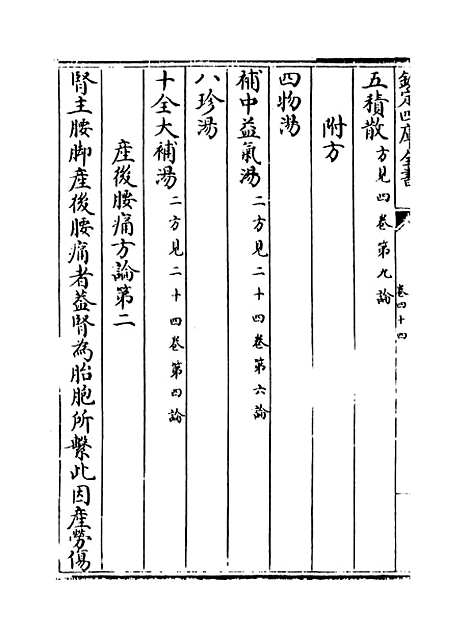 欽定四庫全書
卷四十四
五積散方見四卷第九論
附方
四物湯
補中益氣湯二方見二十四卷第六論
八珍湯
十全大補湯二方見二十四卷第四論
產後腰痛方論第二
腎主腰脚產後腰痛者葢腎為胎胞所繫此因產勞傷